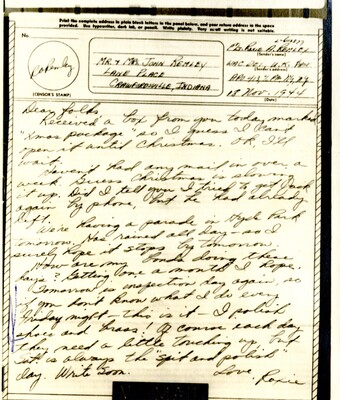 Print the complete address in plain block letters in the panel below, and your return address in the space
provided. Use typewriter, dark ink, or pencil. Write plainly. Very small writing is not suitable.
No.
(CENSOR'S STAMP)
MR. & MRS. JOHN REMLEY
LANE PLACE
CRAWFORDVILLE, INDIANA
(Sender's name)
(Sender's address)
18 Nov. 1944
(Date)
Dear folks,
Received a box from you today marked
"Xmas package" so I guess I can't
open it until Christmas. OK I'll
wait.
Haven't had any mail in over a
week. Guess Christmas is slowing
it up. Did I tell you I tried to get Jack
again by phone, but he had already
left.
We're having a parade in Hyde Park
tomorrow. Has rained all day - so I
surely hope it stops by tomorrow.
How are my bonds doing these
days? Getting one a month I hope.
Tomorrow is inspection day again, so
if you don't know what I do every
Friday night - this is it - I polish
shoes and brass! Of course each day
they need a little touching up, but
Sat. is always the "spit and polish"
day. Write soon.
Love, Roxie